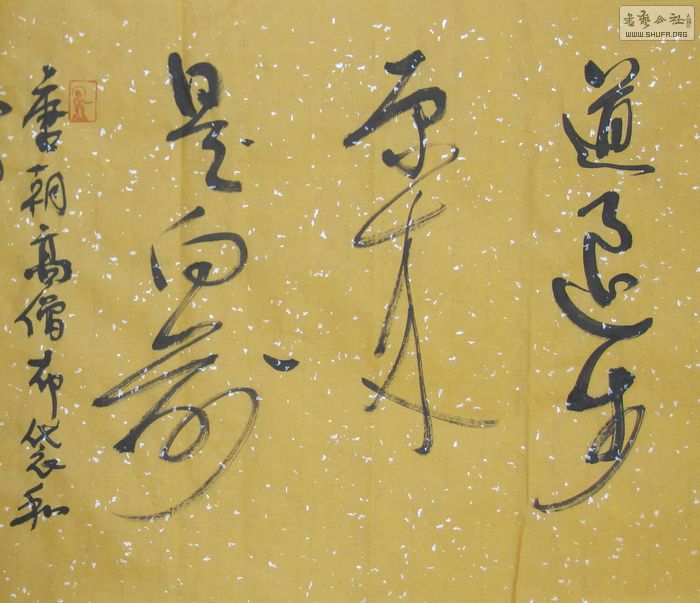 道退步
原来
是向前
唐朝高僧布袋和
书艺公社
WWW.SHUFA.ORG